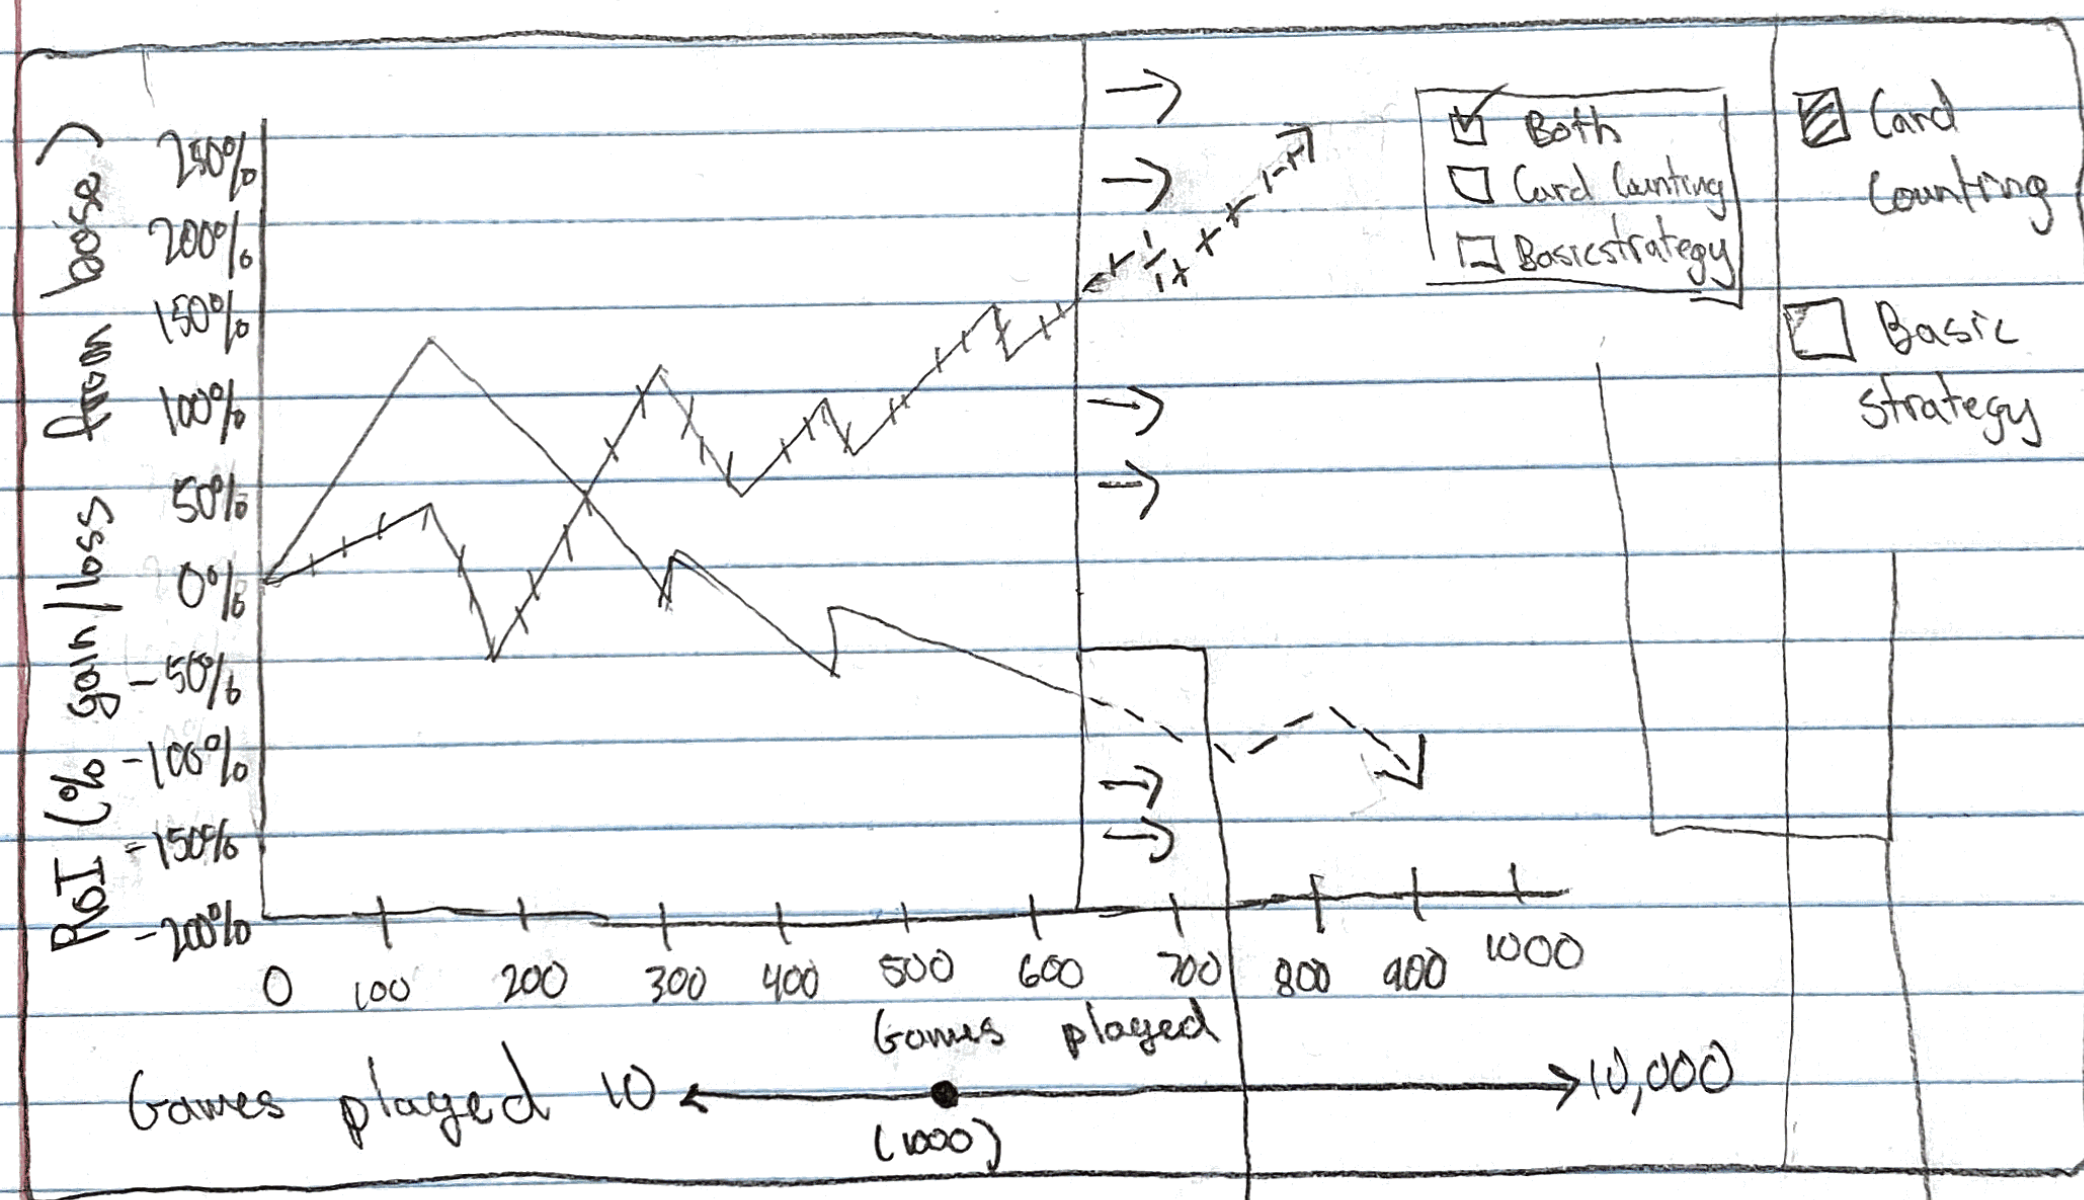 RoI (% gain/loss from base)
250%
200%
150%
100%
50%
0%
-50%
-100%
-150%
-200%
0 100 200 300 400 500 600 700 800 900 1000
Games played
Games played 10 10,000
(1000)
Both
Card Counting
Basic strategy
Card
Counting
Basic
strategy